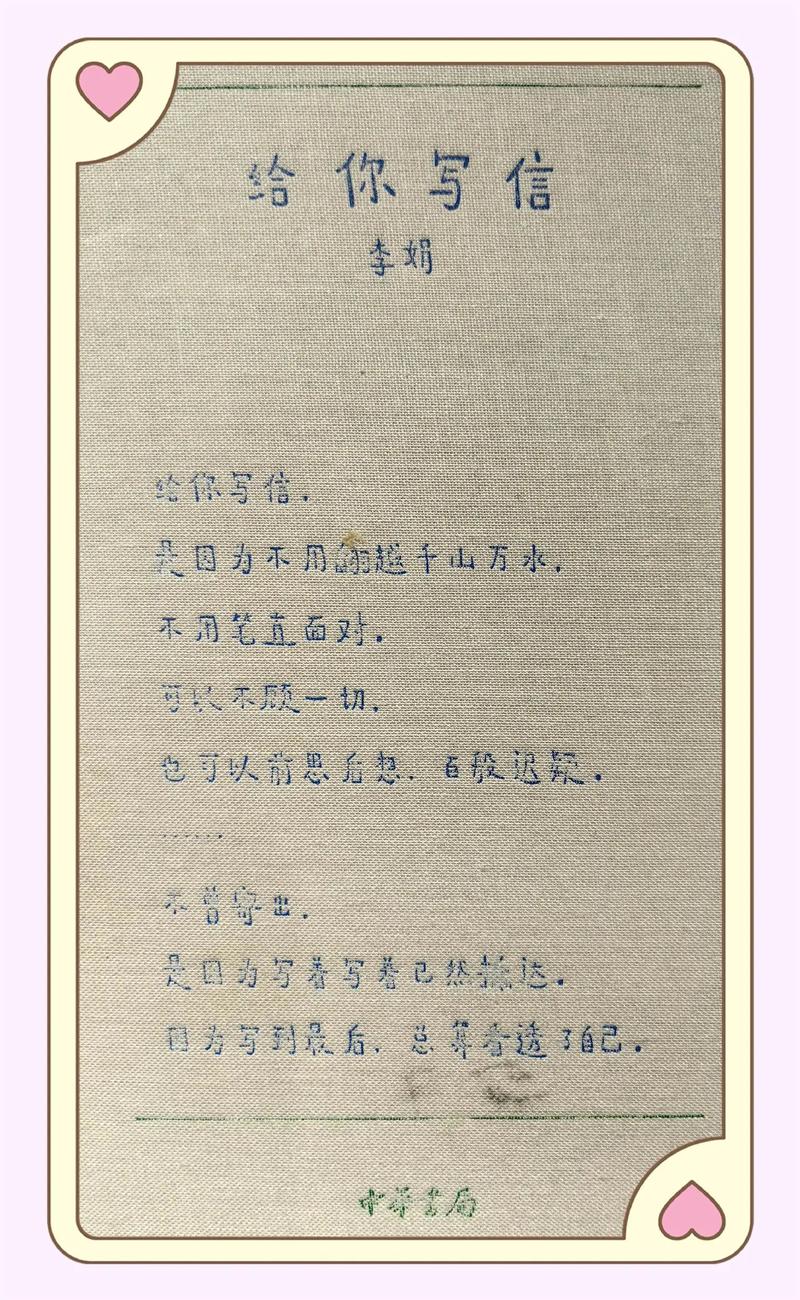 给你写信
李娟
给你写信.
是因为不用翻越千山万水.
不用笔直面对.
可以不顾一切.
也可以前思后想. 百般迟疑.
......
不曾寄出.
是因为写着写着已然抵达.
因为写到最后. 总算看透了自己.
中华书局